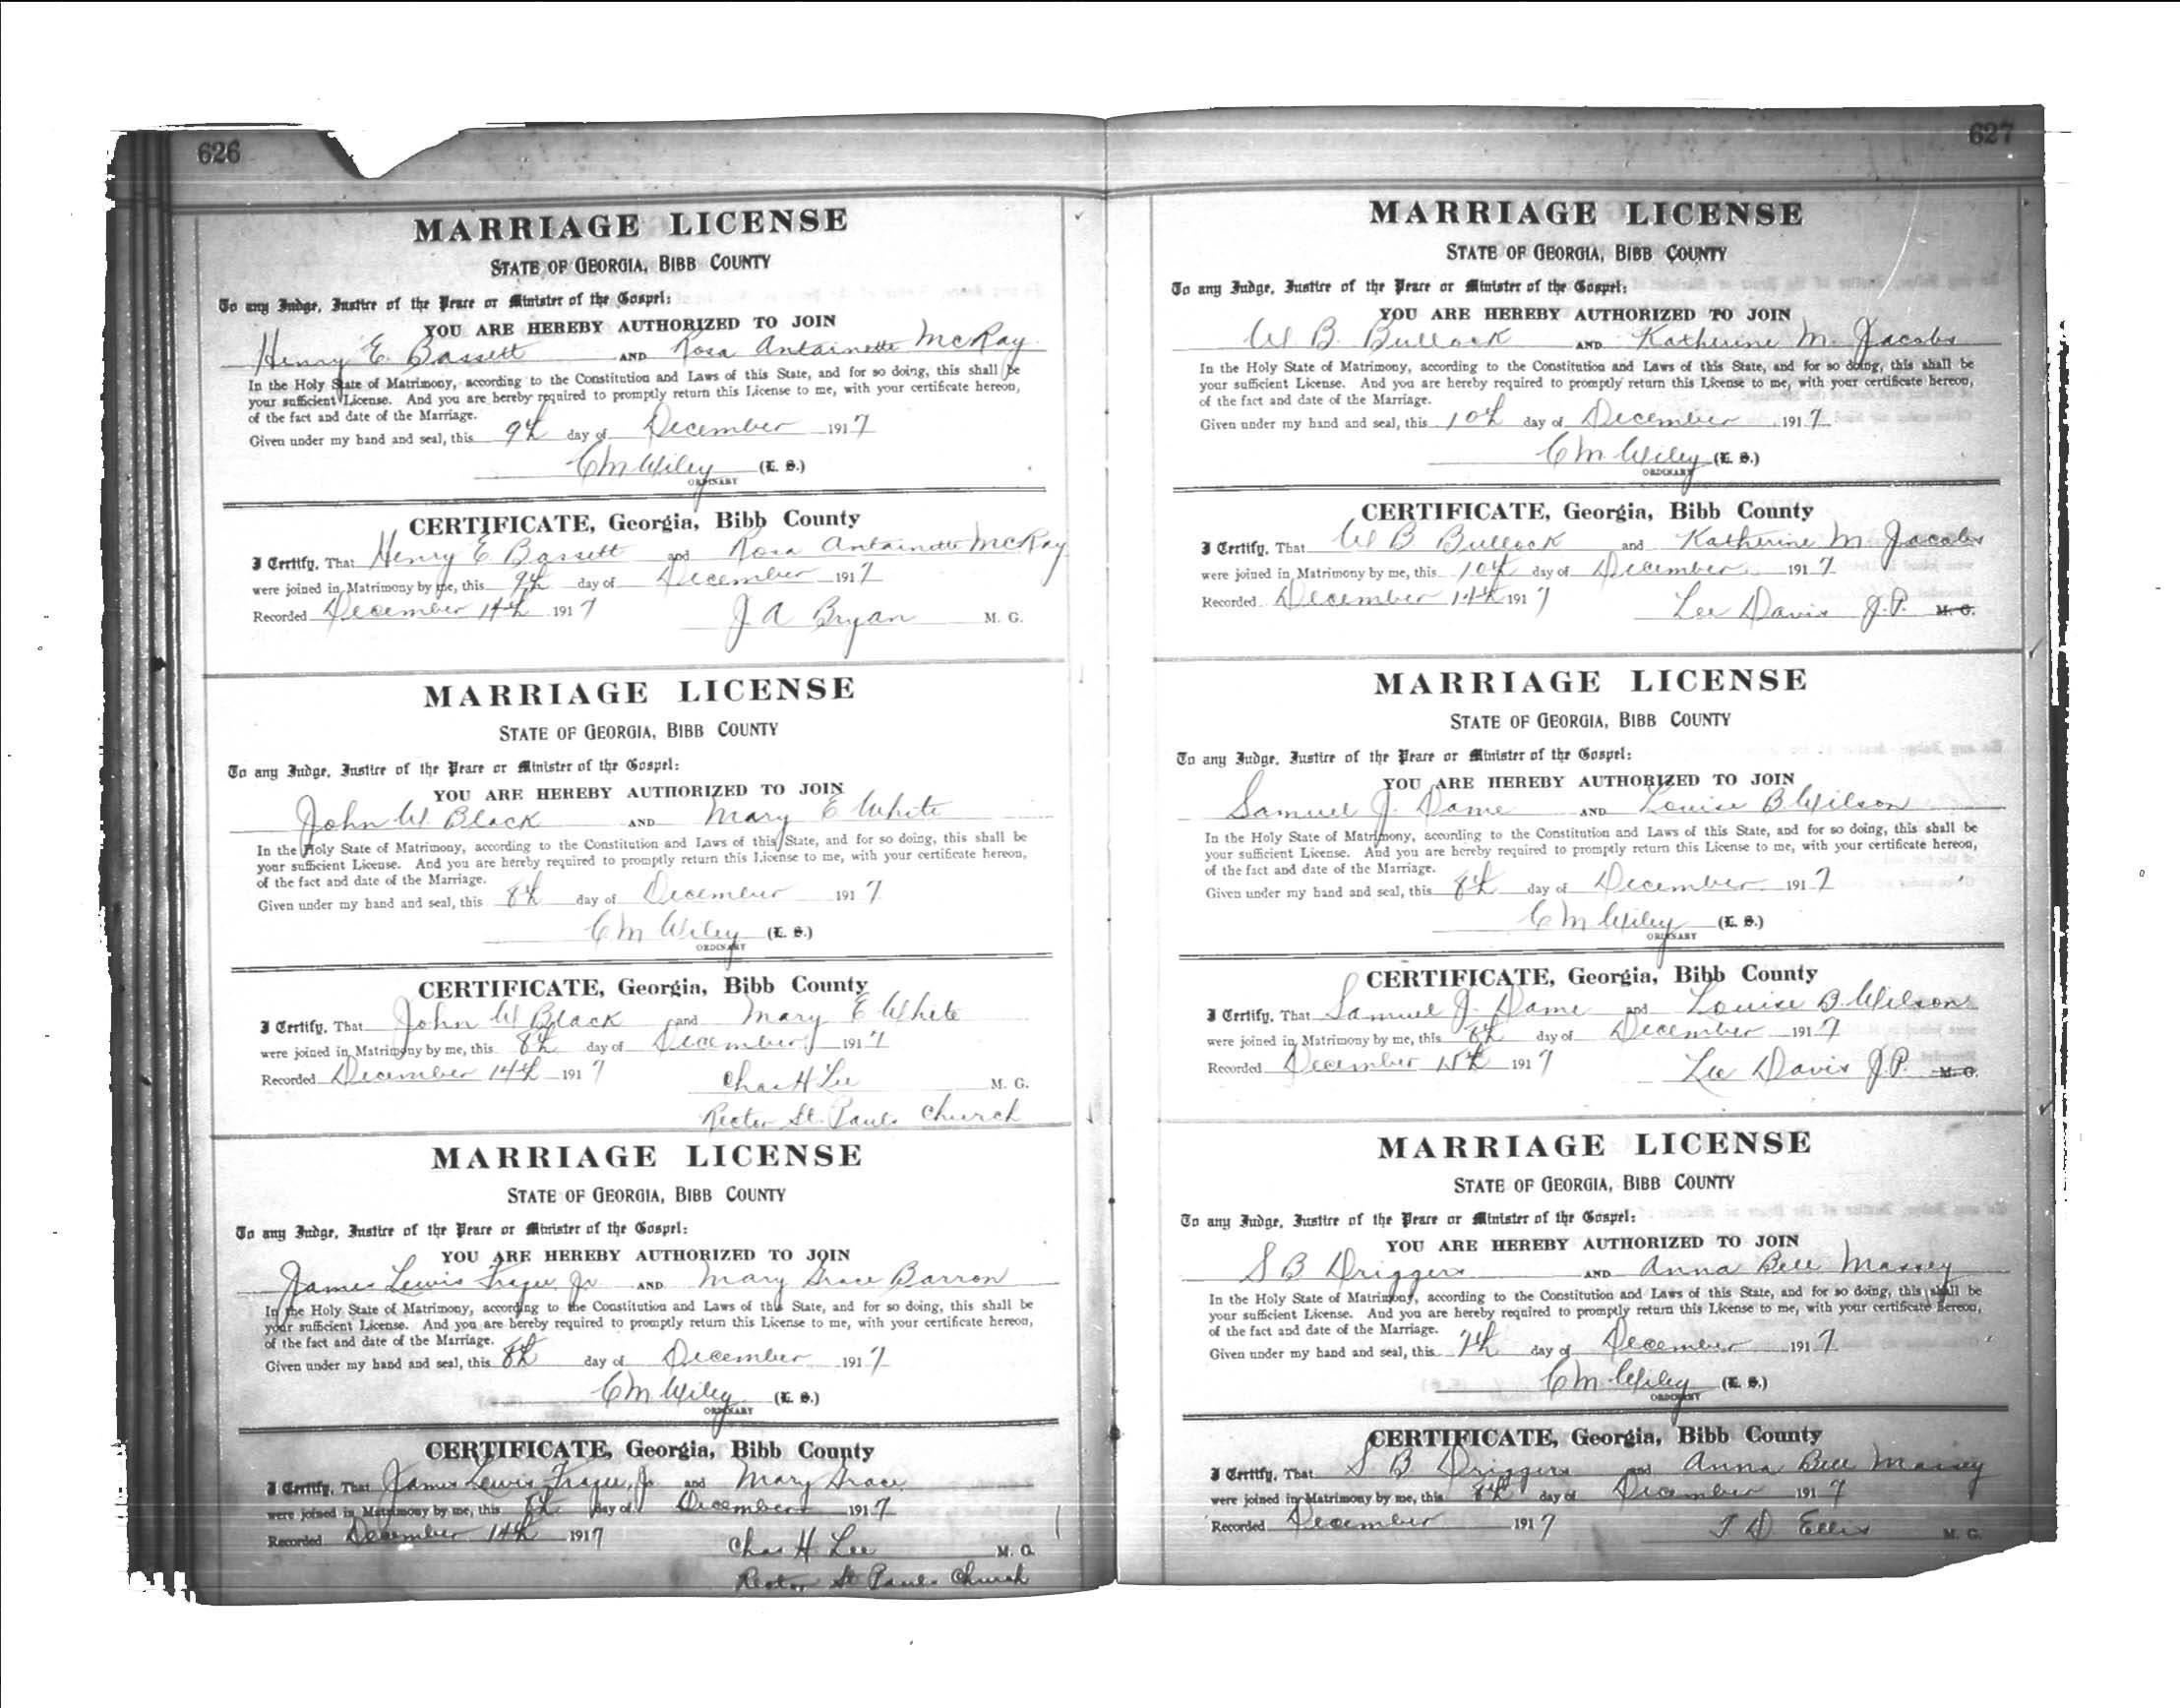 626
MARRIAGE LICENSE
STATE OF GEORGIA, BIBB COUNTY
To any Judge, Justice of the Peace or Minister of the Gospel:
YOU ARE HEREBY AUTHORIZED TO JOIN
Henry E. Bassett AND Rosa Antainette McRay
In the Holy State of Matrimony, according to the Constitution and Laws of this State, and for so doing, this shall be
your sufficient License. And you are hereby required to promptly return this License to me, with your certificate hereon,
of the fact and date of the Marriage.
Given under my hand and seal, this 9th day of December 1917
C M Wiley (L. S.)
ORDINARY
CERTIFICATE, Georgia, Bibb County
I Certify, That Henry E Bassett and Rosa Antainette McRay
were joined in Matrimony by me, this 9th day of December 1917
Recorded December 14th 1917 J A Bryan M. G.
MARRIAGE LICENSE
STATE OF GEORGIA, BIBB COUNTY
To any Judge, Justice of the Peace or Minister of the Gospel:
YOU ARE HEREBY AUTHORIZED TO JOIN
John W Black AND Mary E White
In the Holy State of Matrimony, according to the Constitution and Laws of this State, and for so doing, this shall be
your sufficient License. And you are hereby required to promptly return this License to me, with your certificate hereon,
of the fact and date of the Marriage.
Given under my hand and seal, this 8th day of December 1917
C M Wiley (L. S.)
ORDINARY
CERTIFICATE, Georgia, Bibb County
I Certify, That John W Black and Mary E White
were joined in Matrimony by me, this 8th day of December 1917
Recorded December 14th 1917 Chas H Lee M. G.
Rector St. Pauls Church
MARRIAGE LICENSE
STATE OF GEORGIA, BIBB COUNTY
To any Judge, Justice of the Peace or Minister of the Gospel:
YOU ARE HEREBY AUTHORIZED TO JOIN
James Lewis Jr AND Mary Grace Barron
In the Holy State of Matrimony, according to the Constitution and Laws of this State, and for so doing, this shall be
your sufficient License. And you are hereby required to promptly return this License to me, with your certificate hereon,
of the fact and date of the Marriage.
Given under my hand and seal, this 8th day of December 1917
C M Wiley (L. S.)
ORDINARY
CERTIFICATE, Georgia, Bibb County
I Certify, That James Lewis Jr. and Mary Grace
were joined in Matrimony by me, this 8th day of December 1917
Recorded December 14th 1917 Chas H Lee M. G.
Rector St Pauls Church
627
MARRIAGE LICENSE
STATE OF GEORGIA, BIBB COUNTY
To any Judge, Justice of the Peace or Minister of the Gospel:
YOU ARE HEREBY AUTHORIZED TO JOIN
W B. Bullock AND Katherine M. Jacobs
In the Holy State of Matrimony, according to the Constitution and Laws of this State, and for so doing, this shall be
your sufficient License. And you are hereby required to promptly return this License to me, with your certificate hereon,
of the fact and date of the Marriage.
Given under my hand and seal, this 10th day of December 1917
C M Wiley (L. S.)
ORDINARY
CERTIFICATE, Georgia, Bibb County
I Certify, That W B Bullock and Katherine M. Jacobs
were joined in Matrimony by me, this 10th day of December 1917
Recorded December 14th 1917 Lee Davis J.P. M. G.
MARRIAGE LICENSE
STATE OF GEORGIA, BIBB COUNTY
To any Judge, Justice of the Peace or Minister of the Gospel:
YOU ARE HEREBY AUTHORIZED TO JOIN
Samuel J. Dame AND Louise B Wilson
In the Holy State of Matrimony, according to the Constitution and Laws of this State, and for so doing, this shall be
your sufficient License. And you are hereby required to promptly return this License to me, with your certificate hereon,
of the fact and date of the Marriage.
Given under my hand and seal, this 8th day of December 1917
C M Wiley (L. S.)
ORDINARY
CERTIFICATE, Georgia, Bibb County
I Certify, That Samuel J. Dame and Louise B. Wilson
were joined in Matrimony by me, this 8th day of December 1917
Recorded December 15th 1917 Lee Davis J.P. M. G.
MARRIAGE LICENSE
STATE OF GEORGIA, BIBB COUNTY
To any Judge, Justice of the Peace or Minister of the Gospel:
YOU ARE HEREBY AUTHORIZED TO JOIN
S B Driggers AND Anna Bell Massey
In the Holy State of Matrimony, according to the Constitution and Laws of this State, and for so doing, this shall be
your sufficient License. And you are hereby required to promptly return this License to me, with your certificate hereon,
of the fact and date of the Marriage.
Given under my hand and seal, this 7th day of December 1917
C M Wiley (L. S.)
ORDINARY
CERTIFICATE, Georgia, Bibb County
I Certify, That S. B Driggers and Anna Bell Massey
were joined in Matrimony by me, this 8th day of December 1917
Recorded December 1917 T D Ellis M. G.